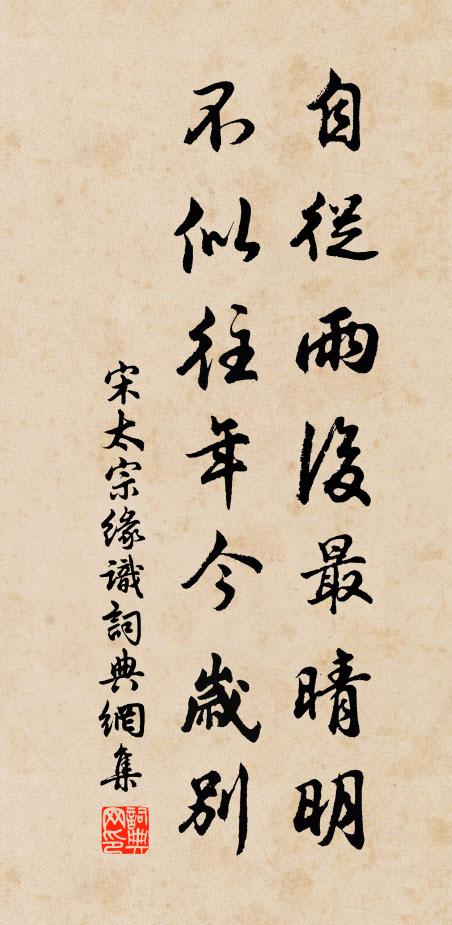 自從雨後最晴明
不似往年今歲別
宋太宗緣識詞典網集
詞典網印